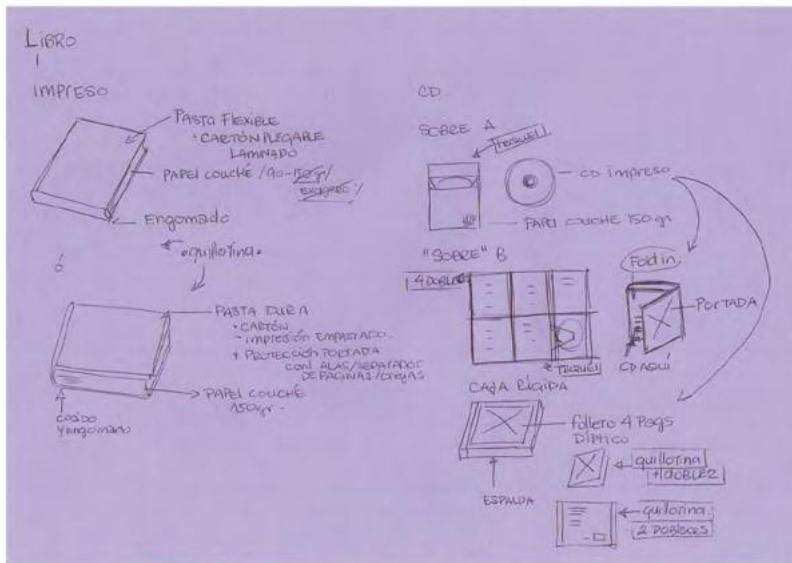 LIBRO
IMPRESO
PASTA FLEXIBLE
• CARTÓN PLEGABLE
LAMINADO
PAPEL COUCHÉ /90-150gr/
Engomado
• guillotina •
ó
PASTA DURA
• CARTÓN
- IMPRESIÓN EMPASTADO
+ PROTECCIÓN PORTADA
CON ALAS/SEPARADOR
DE PÁGINAS/OREJAS
PAPEL COUCHÉ
150gr.
COSIDO
Y ENGOMADO
CD.
SOBRE A
TROQUEL
CD impreso
PAPEL COUCHÉ 150 gr
"SOBRE" B
4 DOBLES
Fold in
PORTADA
TROQUEL
CD AQUÍ
CAJA RÍGIDA
folleto 4 Pags
DÍPTICO
guillotina
+1 DOBLEZ
ESPALDA
guillotina
2 DOBLECES